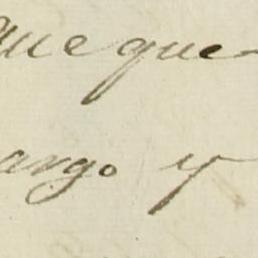 que que
argo y